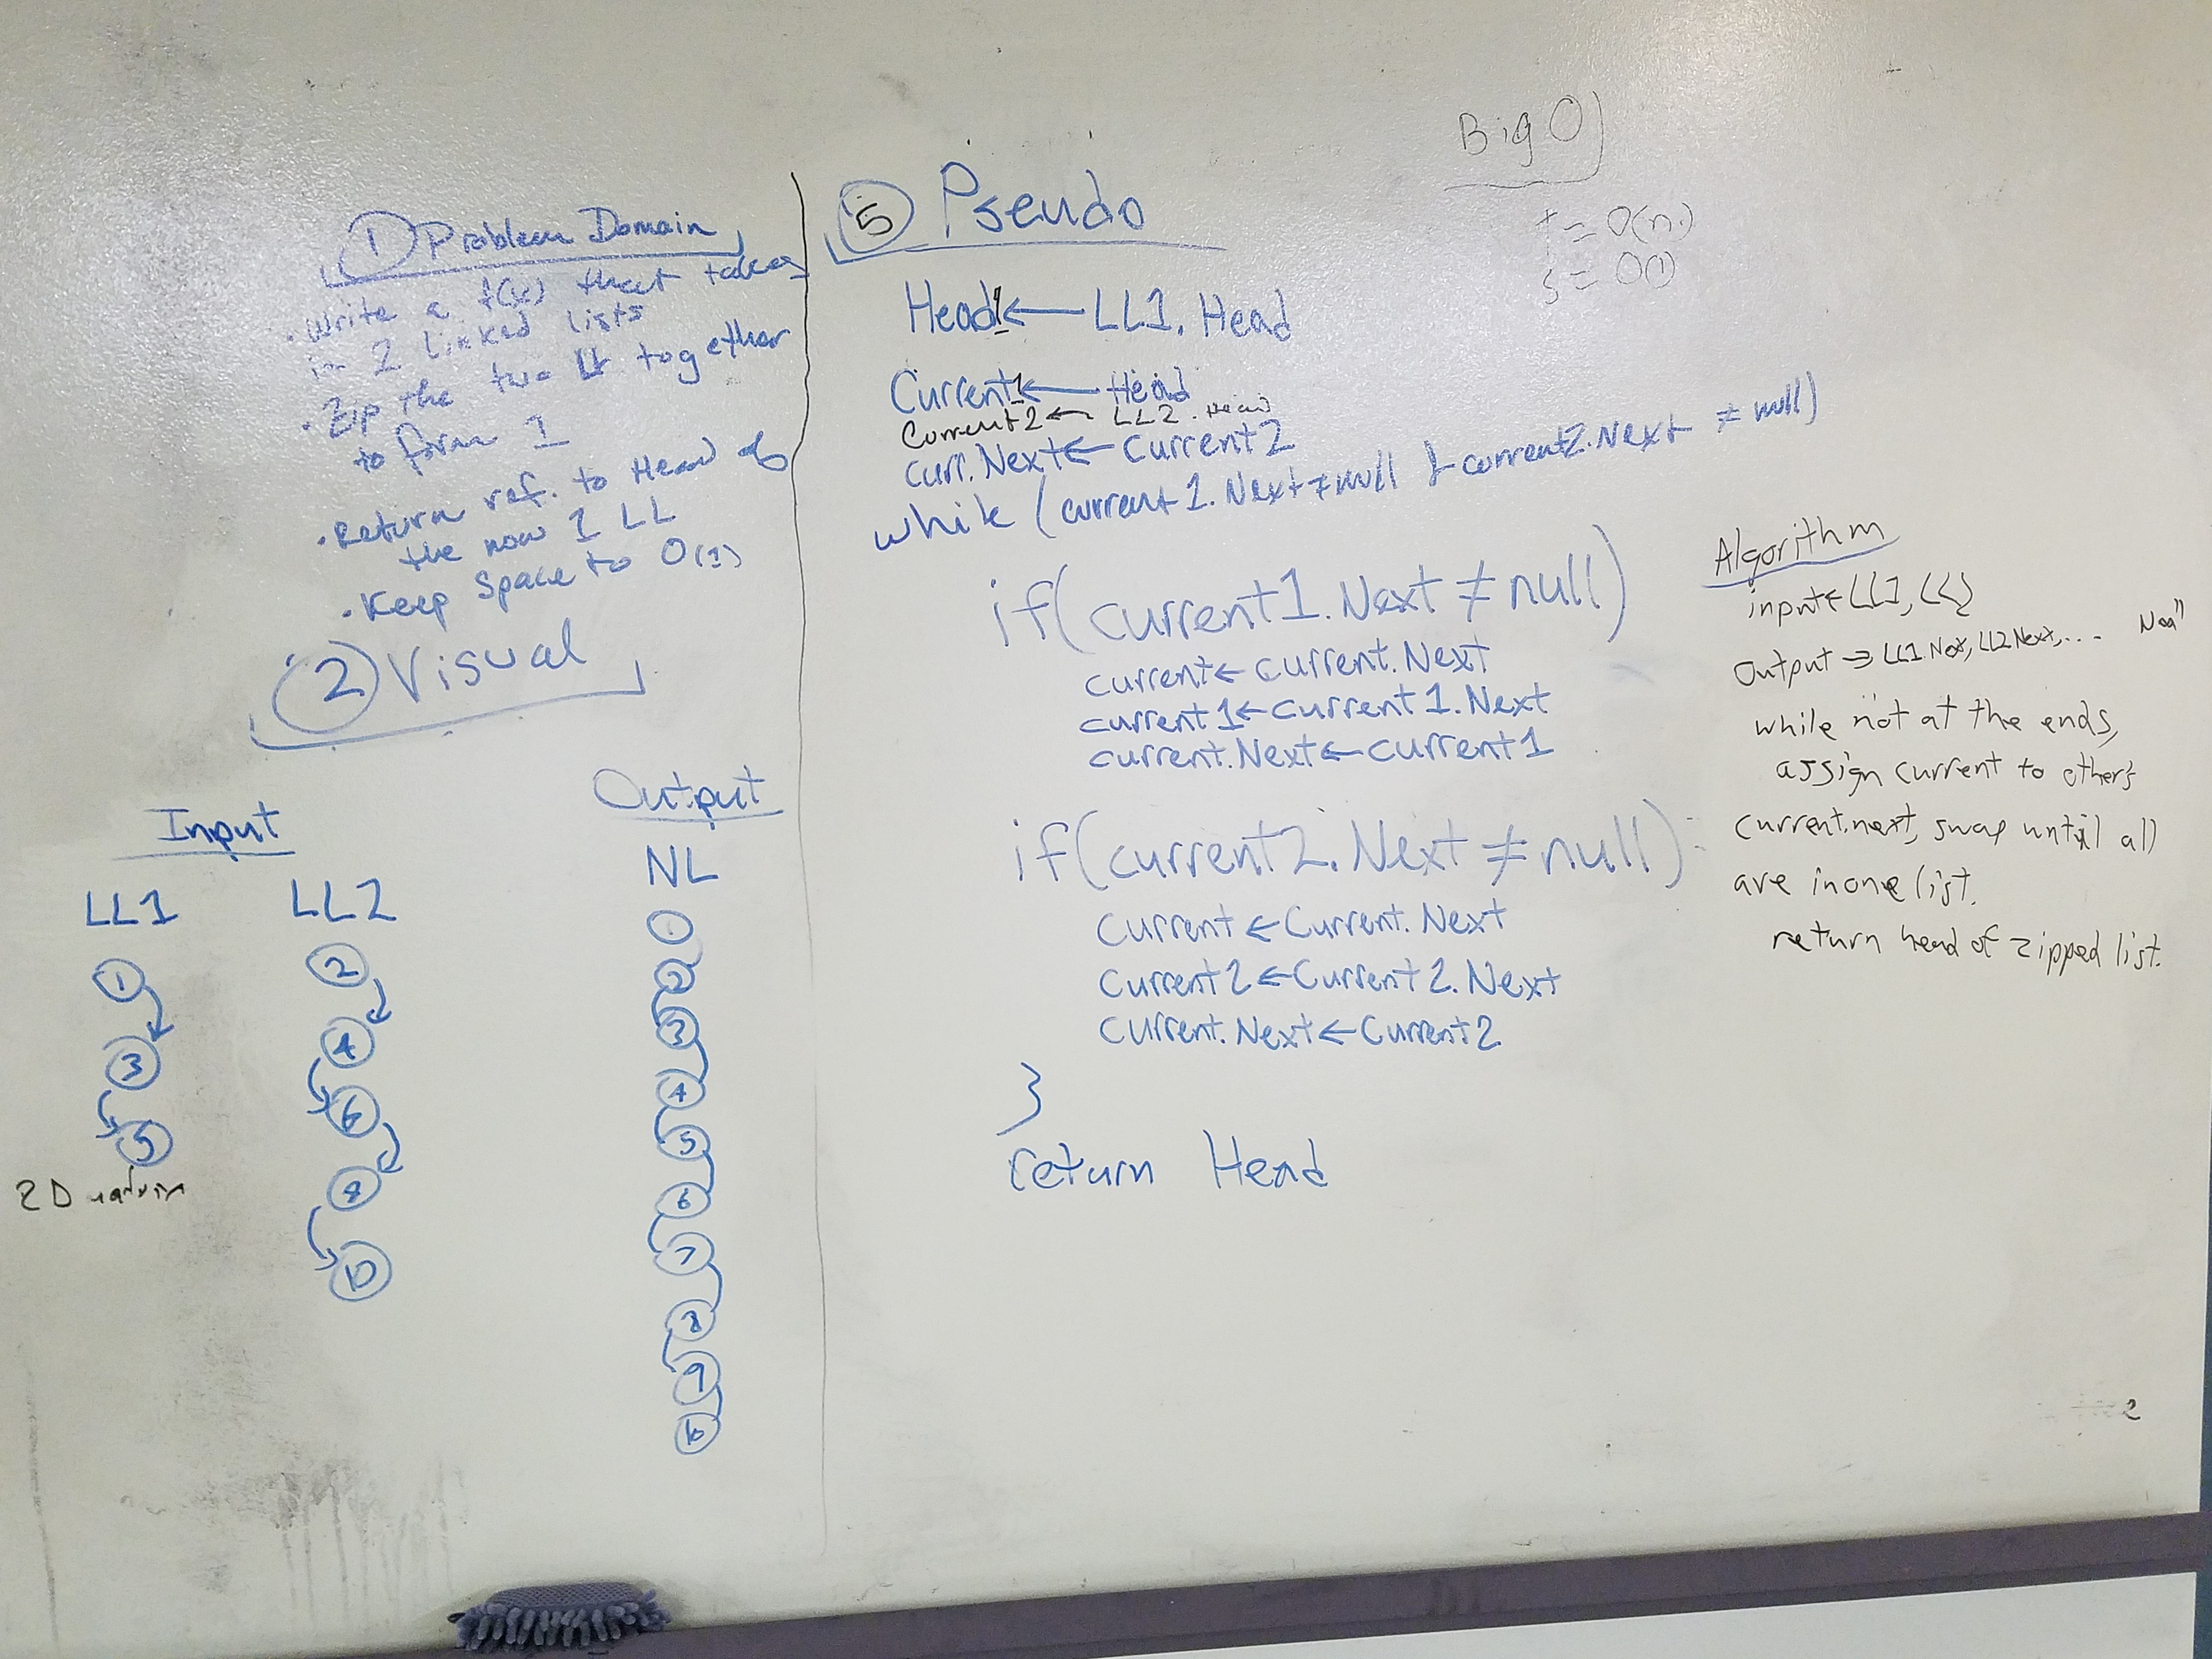 ① Problem Domain
· Write a f(x) that takes
in 2 linked lists
· Zip the two LL together
to form 1
· Return ref. to Head of
the now 1 LL
· Keep space to O(1)
② Visual
Input
LL1
1
3
5
LL2
2
4
6
8
10
2D
Output
NL
1
2
3
4
5
6
7
8
9
10
⑤ Pseudo
Head ← LL1. Head
Current1 ← Head
Current2 ← LL2. Head
curr.Next ← Current2
while (current1.Next ≠ null & current2.Next ≠ null)
if(current1.Next ≠ null)
current ← current.Next
current1 ← current1.Next
current.Next ← current1
if(current2.Next ≠ null)
Current ← Current.Next
Current2 ← Current2.Next
Current.Next ← Current2
}
return Head
Big O
t = O(n)
s = O(1)
Algorithm
input ← LL1, LL2
Output ⇒ LL1.Next, LL2.Next, ...
while not at the ends,
assign current to other's
current.next, swap until all
are in one list.
return head of zipped list.